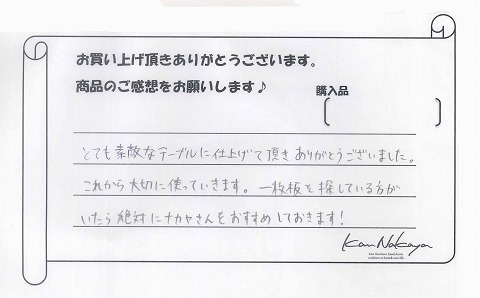 お買い上げ頂きありがとうございます。
商品のご感想をお願いします♪
購入品
とても素敵なテーブルに仕上げて頂きありがとうございました。
これから大切に使っていきます。一枚板を探している方が
いたら絶対にナカヤさんをおすすめしておきます!
Kan Nakaya